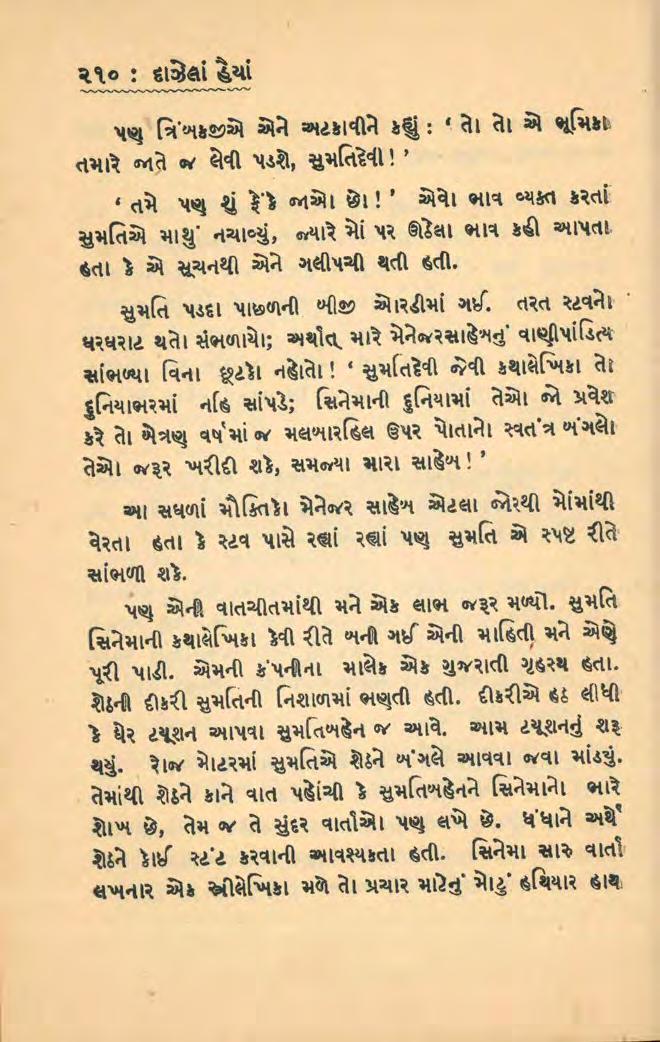 ૨૧૦ : દાઝેલાં હૈયાં
પણ ત્રિંબકજીએ એને અટકાવીને કહ્યું : ‘ તો તો એ ભૂમિકા
તમારે જાતે જ લેવી પડશે, સુમતિદેવી ! ’
‘ તમે પણ શું ફેંકે જાઓ છો ! ’ એવો ભાવ વ્યક્ત કરતાં
સુમતિએ માથું નચાવ્યું, જ્યારે મોં પર ઊઠેલા ભાવ કહી આપતા
હતા કે એ સૂચનથી એને ગલીપચી થતી હતી.
સુમતિ પડદા પાછળની બીજી ઓરડીમાં ગઈ. તરત સ્ટવનો
ઘરઘરાટ થતો સંભળાયો; અર્થાત્ મારે મેનેજરસાહેબનું વાણીપાંડિત્ય
સાંભળ્યા વિના છૂટકો નહોતો ! ‘ સુમતિદેવી જેવી કથાલેખિકા તો
દુનિયાભરમાં નહિ સાંપડે; સિનેમાની દુનિયામાં તેઓ જો પ્રવેશ
કરે તો બેત્રણ વર્ષમાં જ મલબારહિલ ઉપર પોતાનો સ્વતંત્ર બંગલો
તેઓ જરૂર ખરીદી શકે, સમજ્યા મારા સાહેબ ! ’
આ સઘળાં મૌક્તિકો મેનેજર સાહેબ એટલા જોરથી મોંમાંથી
વેરતા હતા કે સ્ટવ પાસે રહ્યાં રહ્યાં પણ સુમતિ એ સ્પષ્ટ રીતે
સાંભળી શકે.
પણ એની વાતચીતમાંથી મને એક લાભ જરૂર મળ્યો. સુમતિ
સિનેમાની કથાલેખિકા કેવી રીતે બની ગઈ એની માહિતી મને એણે
પૂરી પાડી. એમની કંપનીના માલેક એક ગુજરાતી ગૃહસ્થ હતા.
શેઠની દીકરી સુમતિની નિશાળમાં ભણતી હતી. દીકરીએ હઠ લીધી
કે ઘેર ટ્યૂશન આપવા સુમતિબહેન જ આવે. આમ ટ્યૂશનનું શરૂ
થયું. રોજ મોટરમાં સુમતિએ શેઠને બંગલે આવવા જવા માંડયું.
તેમાંથી શેઠને કાને વાત પહોંચી કે સુમતિબહેનને સિનેમાનો ભારે
શોખ છે, તેમ જ તે સુંદર વાર્તાઓ પણ લખે છે. ધંધાને અર્થે
શેઠને કોઈ સ્ટંટ કરવાની આવશ્યકતા હતી. સિનેમા સારુ વાર્તા
લખનાર એક સ્ત્રીલેખિકા મળે તો પ્રચાર માટેનું મોટું હથિયાર હાથ